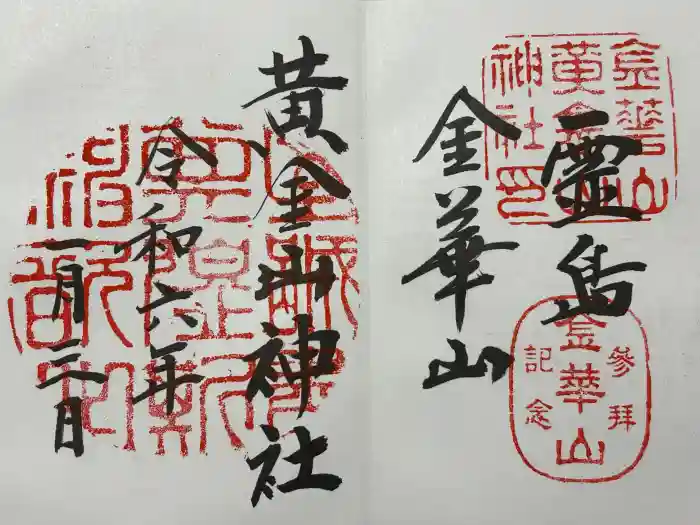 霊島
金華山
金華山
黄金山
神社印
參拜
金華山
記念
黄金山神社
令和六年
一月三日